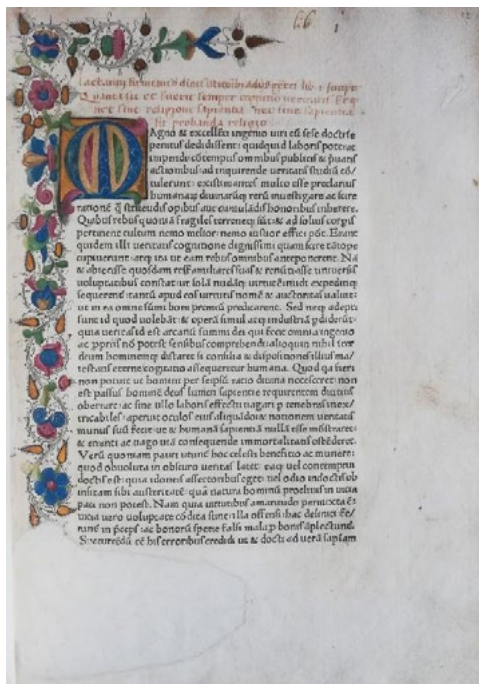 66
1
Magno & excellẽti ingenio uiri cũ sese doctrĩe
penitus dedidissent: quidquid laboris poterat
impendi cõtemptis omnibus publicis & ṗuatis
actionibus: ad inquirende ueritatis studiũ cõ/
tulerunt: existimantes multo esse preclarius
humanarũ diuinarũq; rerũ inuestigare ac scire
rationẽ q̃ struẽdis opibus aut cumulãdis honoribus inherere.
Quibus rebus quoniã fragiles terreneq; sũt: & ad solius corṗis
pertinent cultum nemo melior: nemo iustior effici põt. Erant
quidem illi ueritatis cognitione dignissimi quam scire tãtope
cupiuerunt: atq; ita ut eam rebus omnibus anteponerent. Nã
& abiecisse quosdam res familiares suas & renũtiasse uniuersis
uoluptatibus constat: ut solã nudãq; uirtutẽ nudi expeditiq;
sequerent: tantũ apud eos uirtutis nomẽ & auctoritas ualuit:
ut in ea omne summi boni premiũ predicarent. Sed neq; adepti
sunt id quod uolebãt: & operã simul atq; industriã ṗdiderũt:
quia ueritas id est arcanũ summi dei qui fecit omnia ingenio
ac ṗpriis nõ potest sensibus comprehendi: alioquin nihil inter
deum hominemq; distaret si consilia & dispositiones illius ma/
iestatis eterne cogitatio assequeretur humana. Quod qa fieri
non potuit ut homini per seipsũ ratio diuina notesceret: non
est passus hominẽ deus lumen sapientie requirentem diutius
oberrare: ac sine ullo laboris effectu uagari ṗ tenebras inex/
tricabiles: aperuit oculos eius aliquãdo: & notionem ueritatis
munus suũ fecit: ut & humanã sapientiã nullã esse mõstraret:
& erranti ac uago uiã consequende immortalitatis ostẽderet.
Verũ quoniam pauci utunt hoc celesti beneficio ac munere:
quod obuoluta in obscuro ueritas latet: eaq; uel contemptui
doctis est: quia idoneis assertoribus eget: uel odio indoctis ob
insitam sibi austeritatẽ: quã natura hominũ procliuis in uitia
pati non potest. Nam quia uirtutibus amaritudo permixta ẽ:
uitia uero uoluptate cõdita sunt: illa offensi: hac deliniti fe/
runt in ṗceps: ac bonorũ specie falsi mala ṗ bonis aplectunt.
Succurrẽdũ eẽ his erroribus credidi: ut & docti ad uerã sapiam